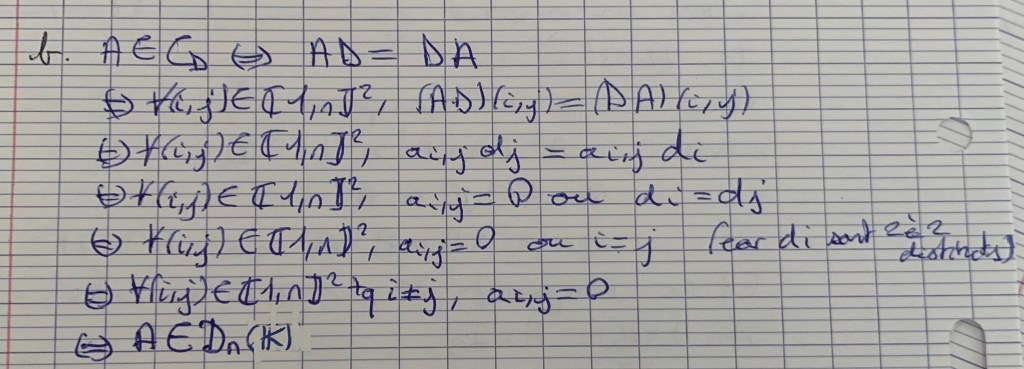 b. A ∈ C_D ⇔ AD = DA
⇔ ∀(i,j) ∈ ⟦1,n⟧², (AD)(i,j) = (DA)(i,j)
⇔ ∀(i,j) ∈ ⟦1,n⟧², a_{i,j} d_j = a_{i,j} d_i
⇔ ∀(i,j) ∈ ⟦1,n⟧², a_{i,j} = 0 ou d_i = d_j
⇔ ∀(i,j) ∈ ⟦1,n⟧², a_{i,j} = 0 ou i = j (car di sont 2 à 2 distincts)
⇔ ∀(i,j) ∈ ⟦1,n⟧² tq i ≠ j, a_{i,j} = 0
⇔ A ∈ D_n(𝕂)